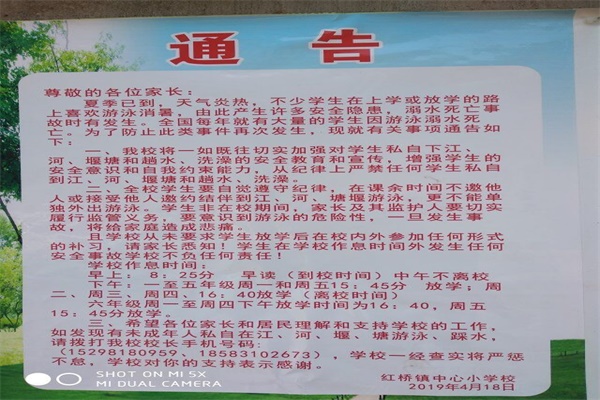 通 告
尊敬的各位家长：
夏季已到，天气炎热，不少学生在上学或放学的路
上喜欢游泳消暑，由此产生许多安全隐患，溺水死亡事
故时有发生。全国每年就有大量的学生因游泳溺水死
亡。为了防止此类事件再次发生，现就有关事项通告如
下：
一、我校将一如既往切实加强对学生私自下江、
河、堰塘和趟水、洗澡的安全教育和宣传，增强学生的
安全意识和自我约束能力，从纪律上严禁任何学生私自
到江、河、堰塘和趟水、洗澡。
二、全校学生要自觉遵守纪律，在课余时间不邀他
人或接受他人邀约结伴到江、河、塘堰游泳，更不能单
独外出游泳。学生非在校期间，家长及其监护人要切实
履行监管义务，要意识到游泳的危险性，一旦发生事
故，将给家庭造成悲痛。
且学校从未要求学生放学后在校内外参加任何形式
的补习，请家长悉知！学生在学校作息时间外发生任何
安全事故学校不负任何责任！
学校作息时间：
早上：8：25分 早读（到校时间）中午不离校
下午：一至五年级周一和周五15：45分 放学；周
二、周三、周四、16：40放学（离校时间）
六年级周一至周四下午放学时间为16：40，周五
15：45分放学。
三、希望各位家长和居民理解和支持学校的工作，
如发现有未成年人私自在江、河、堰、塘游泳、踩水，
请拨打我校校长手机号码：
（15298180959、18583102673），学校一经查实将严惩
不怠，学校对你的支持表示感谢。
红桥镇中心小学校
2019年4月18日
SHOT ON MI 5X
MI DUAL CAMERA